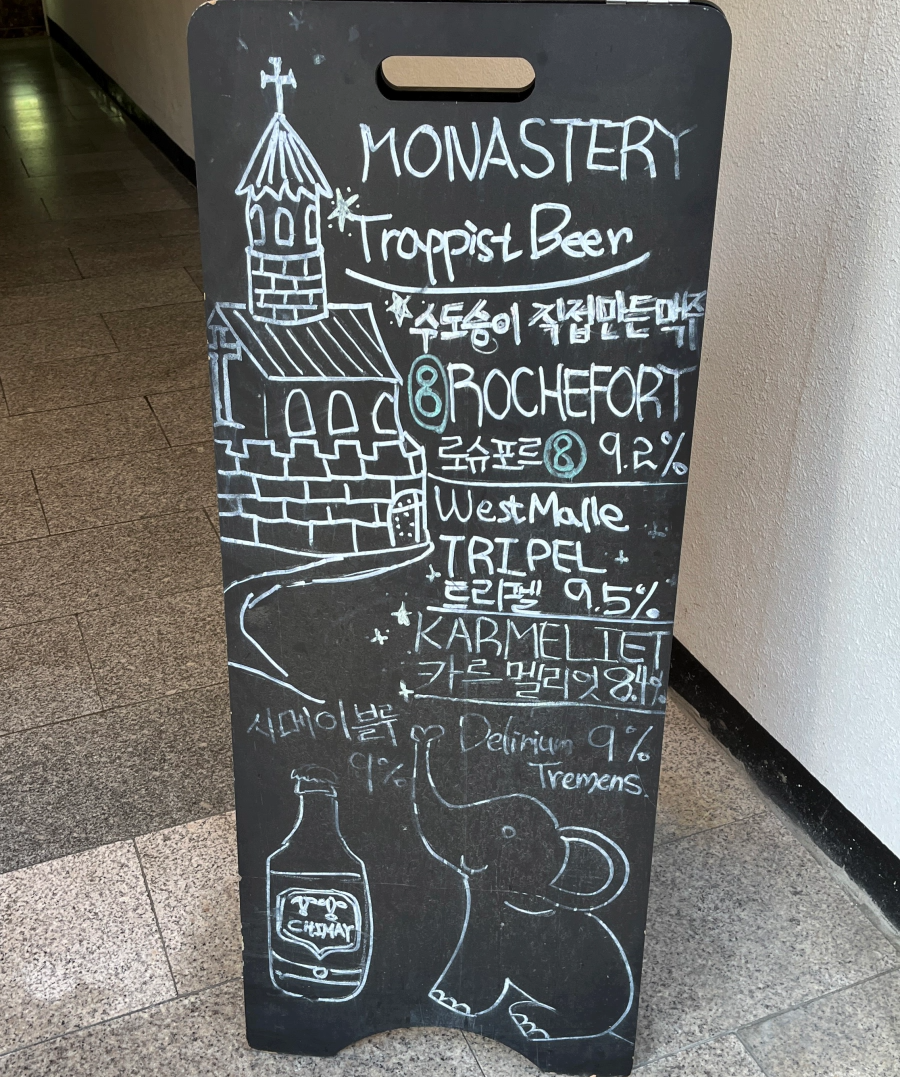 MONASTERY
Trappist Beer
수도승이 직접만든맥주
8 ROCHEFORT
로슈포르 8 9.2%
WestMalle
TRIPEL
트리펠 9.5%
KARMELIET
카르멜리잇 8.4%
시메이블루
9%
Delirium 9%
Tremens.
CHIMAY